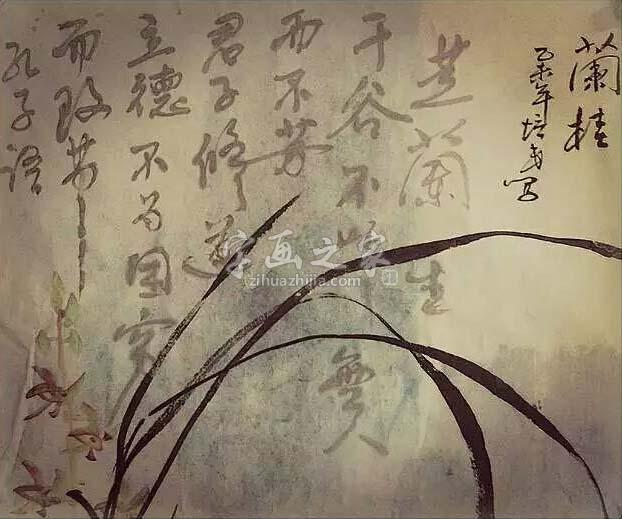 蘭桂
乙未年培写
芝蘭生
于谷不以無人
而不芳
君子修道
立德不为困窮
而改节
孔子语
字画之家
zihuazhijia.com